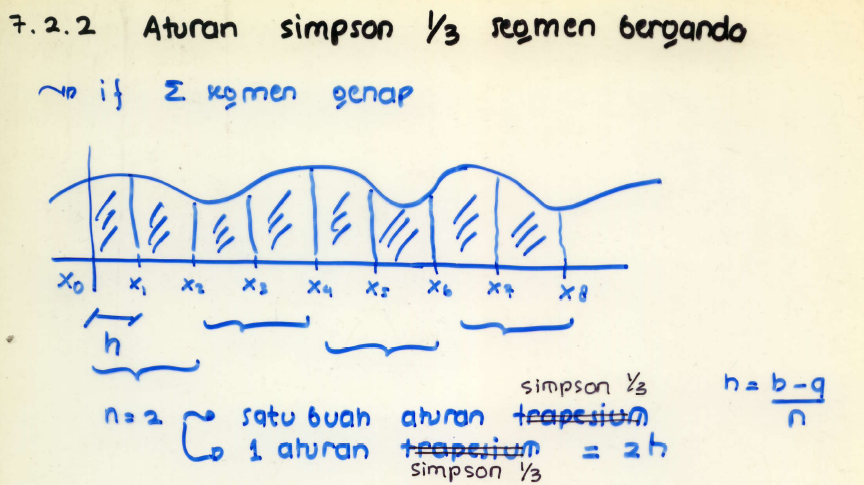 7.2.2 Aturan simpson 1/3 segmen berganda
~> if Σ segmen genap
x0 x1 x2 x3 x4 x5 x6 x7 x8
h
simpson 1/3
h = b-a/n
n=2 → satu buah aturan trapesium
↳ 1 aturan trapesium = 2h
simpson 1/3